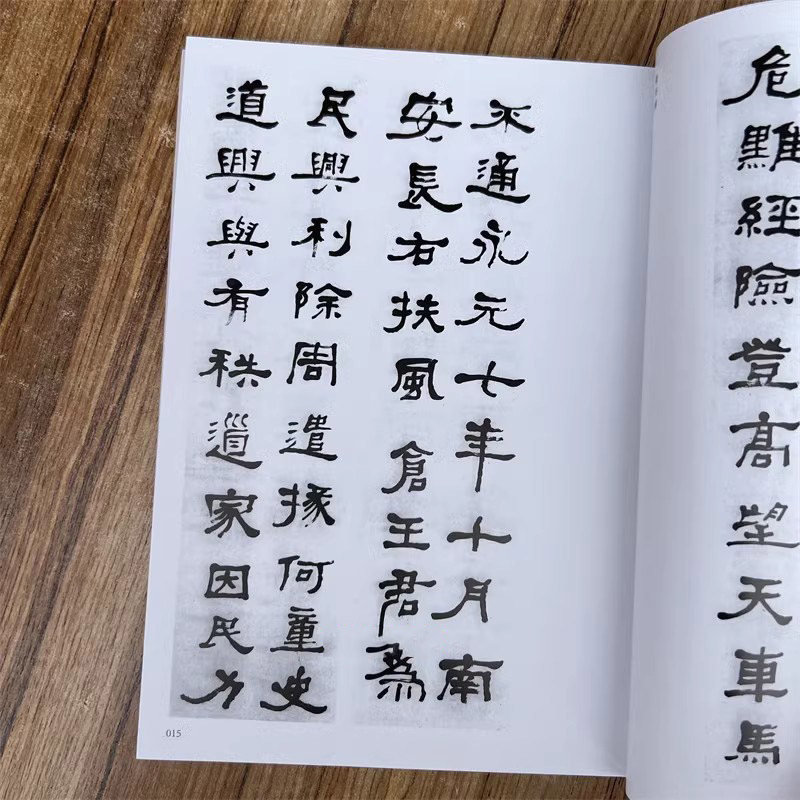 危難經險登高望天車馬
不通永元七年十月南
安長右扶風倉王君爲
民興利除害遣掾何童史
道興與有秩遒家因民力
015